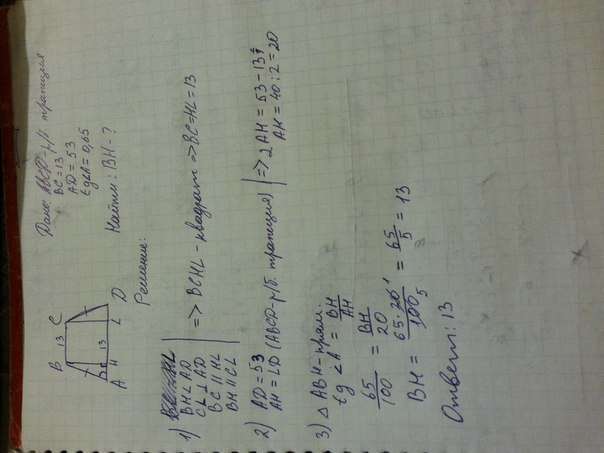 Дано: ABCD-р/б трапеция
BC=13
AD=53
tg∠A=0,65
Найти: BH-?
B 13 C
13
A H L D
Решение:
1)
BH⊥AD
CL⊥AD
BC∥HL
BH∥CL
=> BCHL-квадрат => BC=HL=13
2) AD=53
AH=LD (ABCD-р/б. трапеция)
=> 2AH=53-13
AH=40:2=20
3) △ABH-прям.:
tg ∠A = BH/AH
65/100 = BH/20
BH = 65·20/100 = 65/5 = 13
Ответ: 13